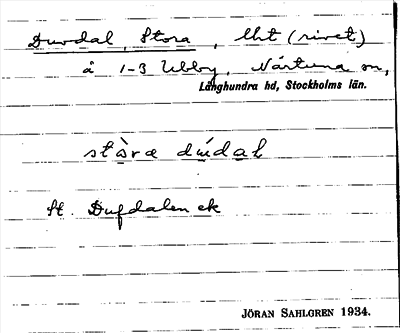 Duvdal, Stora, lht (rivet)
å 1-3 Ubby, Närtuna sn,
Långhundra hd, Stockholms län.
stòra dúdal
St. Dufdalen ek
JÖRAN SAHLGREN 1934.